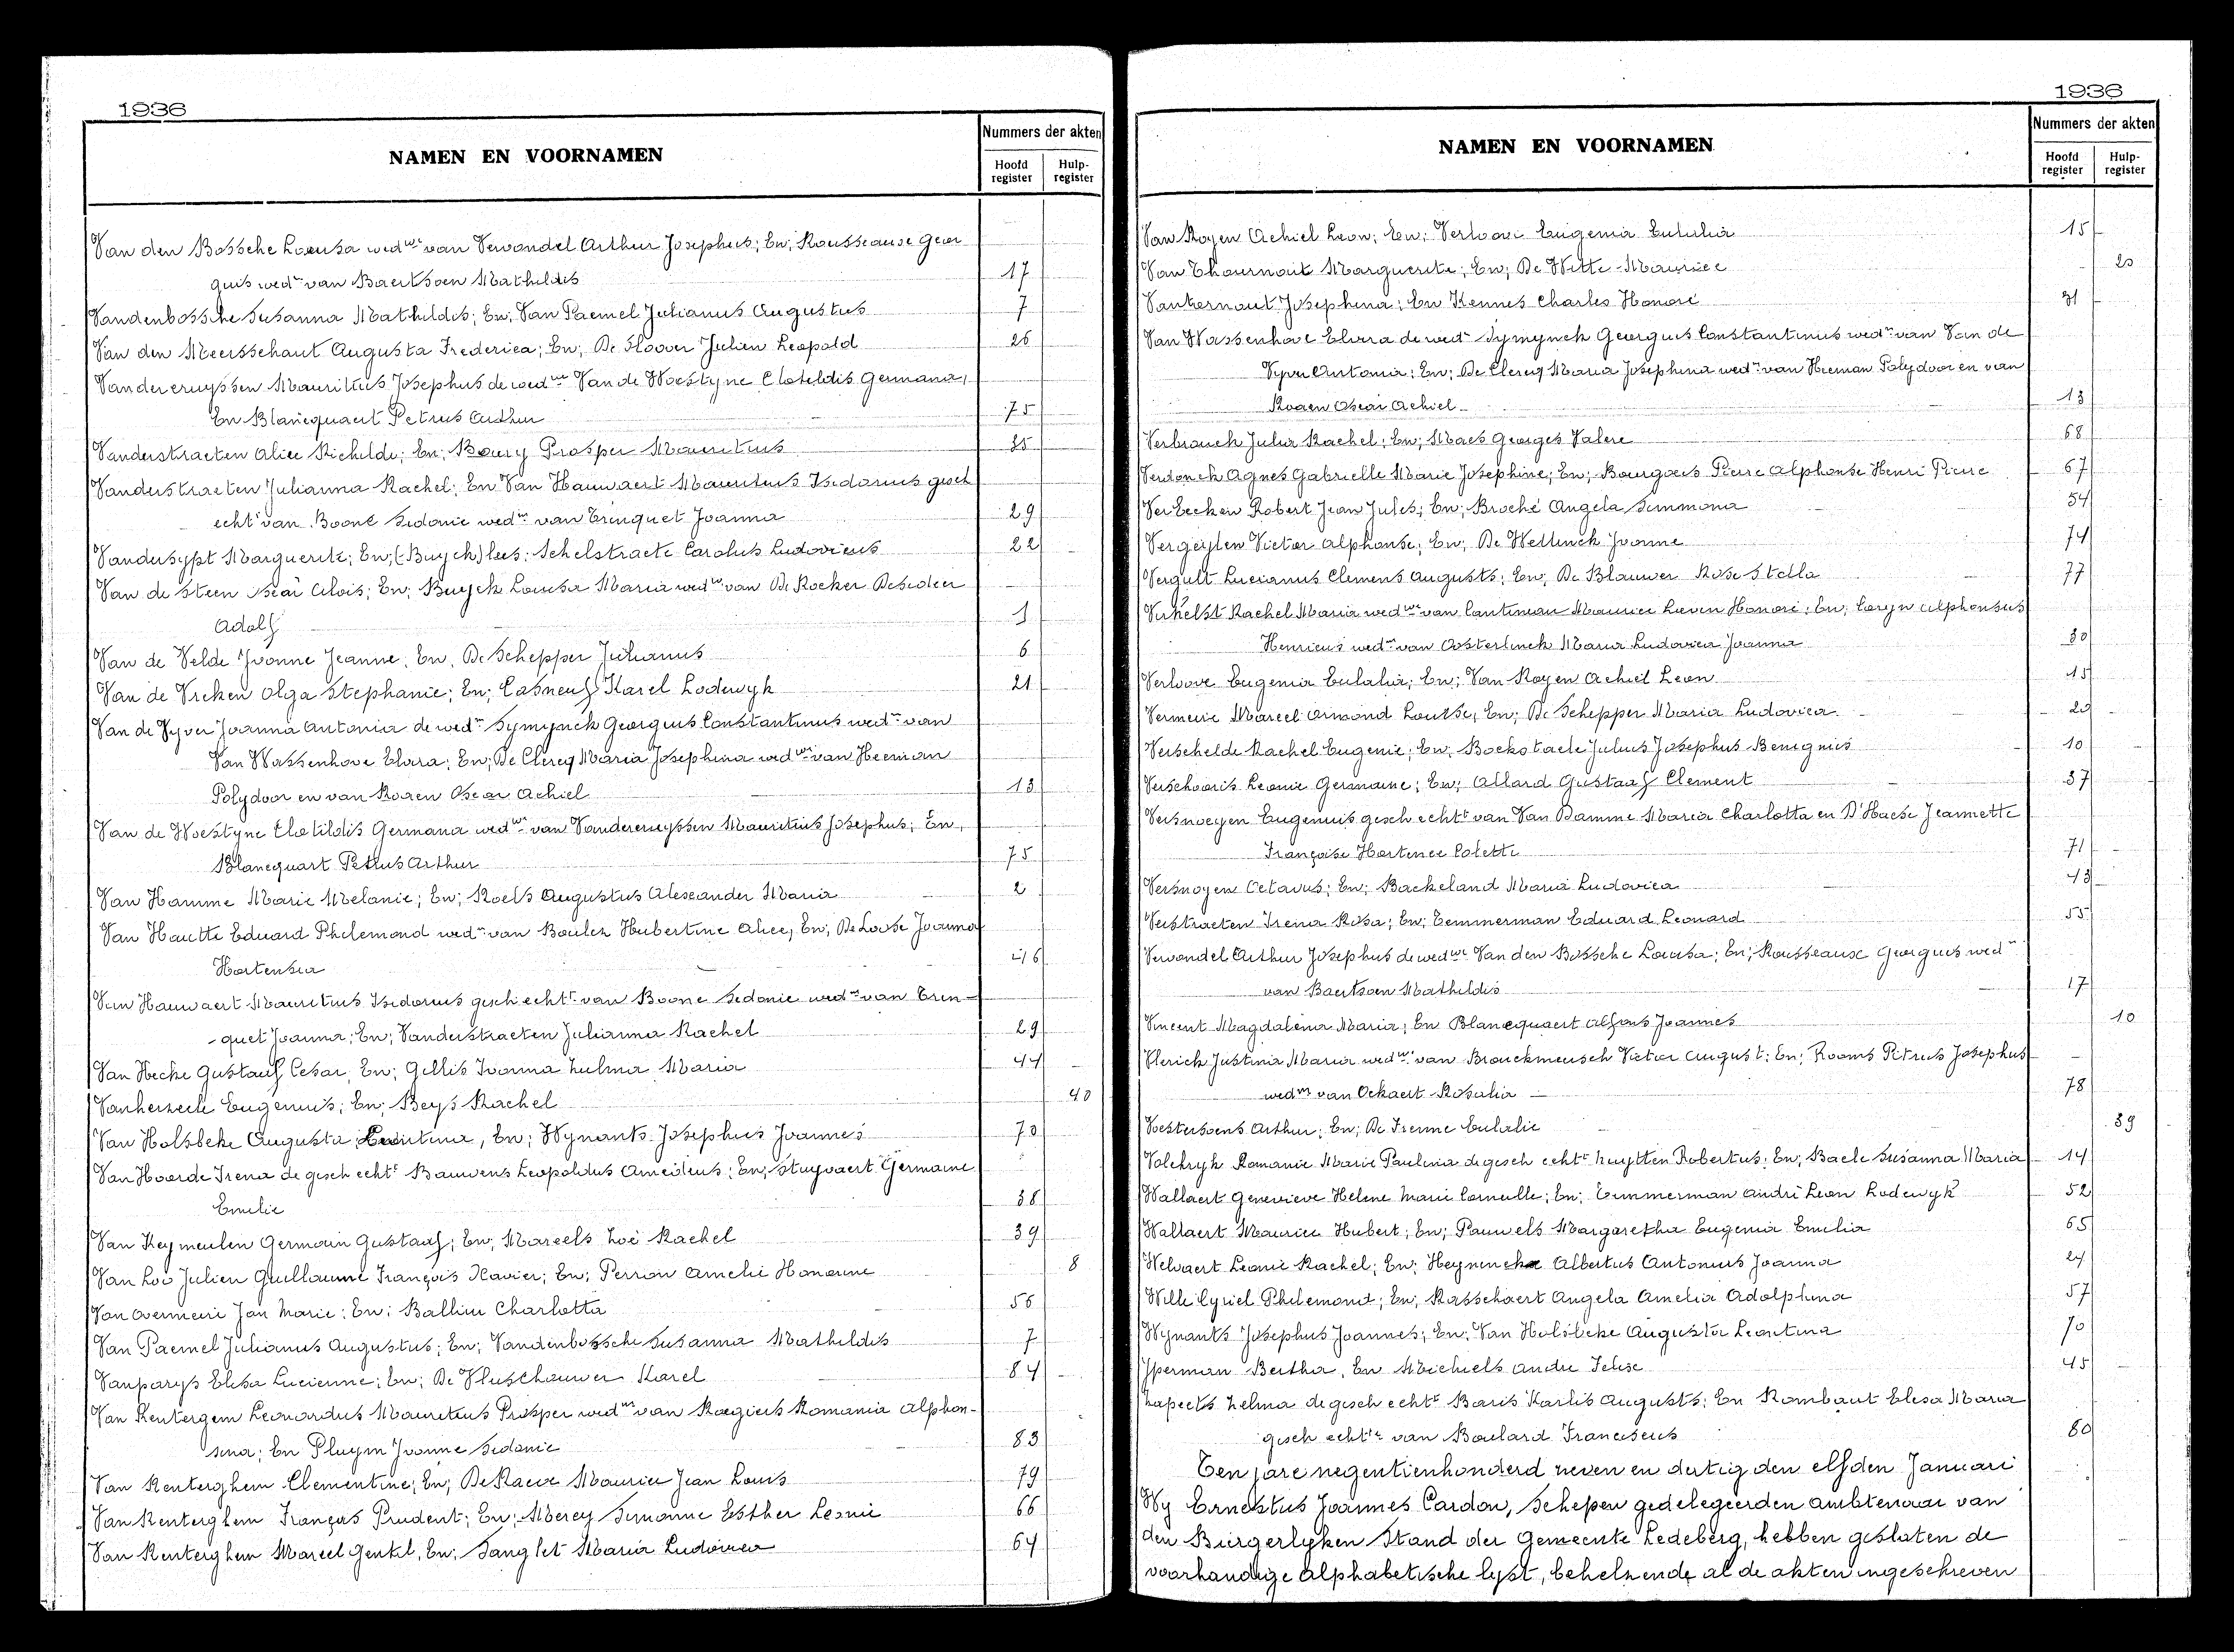 1936
NAMEN EN VOORNAMEN
Nummers der akten
Hoofd register
Hulp-register
Van den Bossche Louisa wedwe van Vervondel Arthur Josephus; En; Rousseaux Geor
guis wedr van Baertsoen Mathildis 17
Vandenbossche Susanna Mathildis; En; Van Paemel Julianus Augustus 7
Van den Meersschaut Augusta Frederica; En; De Sloover Julien Leopold 26
Vandercruyssen Mauritius Josephus de wedwe Van de Woestyne Clotildis Germana;
En Blancquaert Petrus Arthur 75
Vanderstraeten Alice Richilde; En; Boury Prosper Mauritius 35
Vanderstraeten Julianna Rachel; En Van Hauwaert Mauritius Isidorius gesch
echtt van Boone Sidonie wedr van Trenquet Joanna 29
Vandersypt Marguerite; En; (-Buyck) lees: Schelstraete Carolus Ludovicus 22
Van de Steen Oscar Alois; En; Buyck Louisa Maria wedwe van De Rocker Desideer
Adolf 1
Van de Velde Yvonne Jeanne, En, De Schepper Julianus 6
Van de Vreken Olga Stephanie; En; Casneuf Karel Lodewyk 21
Van de Vyver Joanna Antonia de wedr Symynck Georgius Constantinus wedr van
Van Wassenhove Elvira; En; De Clercq Maria Josephina wedwe van Heeman
Polydoor en van Roaen Oscar Achiel 13
Van de Woestyne Clotildis Germana wedwe van Vandercruyssen Mauritius Josephus; En,
Blancquart Petrus Arthur 75
Van Hamme Marie Melanie; En; Roels Augustus Alexander Maria 2
Van Hautte Eduard Philemond wedr van Boulez Hubertine Alice, En; De Loose Joanna
Hortensia 46
Van Hauwaert Mauritius Isidorius gesch echtt van Boone Sidonie wedr van Tren-
-quet Joanna; En; Vanderstraeten Julianna Rachel 29
Van Hecke Gustaaf Cesar, En; Gillis Ivonna Zulma Maria 44
Vanherzeele Eugenius; En; Beys Rachel 40
Van Holsbeke Augusta Leontina, En; Wynants Josephus Joannes 70
Van Hoorde Irena de gesch echtt Bauwens Leopoldus Amedeus; En; Stuyvaert Germaine
Emilie 38
Van Keymeulen Germain Gustaaf; En; Mareels Zoé Rachel 39
Van Loo Julien Guillaume François Xavier; En; Perron Amelie Honorine 8
Van Overmeire Jan Marie; En; Balliu Charlotta 56
Van Paemel Julianus Augustus; En; Vandenbossche Susanna Mathildis 7
Vanparys Elisa Lucienne; En; De Vleeschauwer Karel 84
Van Rentergem Leonardus Mauritius Prosper wedr van Raegiers Romania Alphon-
sina; En Pluym Yvonne Sidonie 83
Van Renterghem Clementine; En; De Raeve Maurice Jean Louis 79
Van Renterghem François Prudent; En; Merey Simonne Esther Leonie 66
Van Renterghem Marcel Gentil, En; Sanglet Maria Ludovica 64
1936
NAMEN EN VOORNAMEN
Nummers der akten
Hoofd register
Hulp-register
Van Royen Achiel Leon; En; Verloove Eugenia Eulalia 15
Van Thournout Marguerite; En; De Witte Maurice 20
Vantornout Josephina; En Kennes Charles Honoré 31
Van Wassenhove Elvira de wedr Symynck Georgius Constantinus wedr van Van de
Vyver Antonia; En; De Clercq Maria Josephina wedr van Heeman Polydoor en van
Roaen Oscar Achiel 13
Verbrouck Julia Rachel; En; Maes Georges Valere 68
Verdonck Agnes Gabrielle Marie Josephine; En; Bourgois Pierre Alphonse Henri Pierre 67
Ver Eecken Robert Jean Jules; En; Broché Angela Simmona 54
Vergeylen Victor Alphonse; En; De Wettinck Yvonne 74
Vergult Lucianus Clemens Augusts; En; De Blauwer Rose Stella 77
Verhelst Rachel Maria wedwe van Cantineau Maurice Lieven Honoré; En; Coryn Alphonsus
Henricus wedr van Oosterlinck Maria Ludovica Joanna 30
Verloove Eugenia Eulalia; En; Van Royen Achiel Leon 15
Vermeire Marcel Armond Louise; En; De Schepper Maria Ludovica 20
Verschelde Rachel Eugenie; En; Bockstaele Julius Josephus Benignus 10
Verschooris Leonie Germaine; En; Allard Gustaaf Clement 37
Versnoeyen Eugenius gesch echtt van Van Damme Maria Charlotta en D'Haese Jeannette
Françoise Hortence Colette 71
Versnoyen Octavus; En; Backeland Maria Ludovica 43
Verstraeten Irena Rosa; En; Temmerman Eduard Leonard 55
Vervondel Arthur Josephus de wedwe Van den Bossche Louisa; En; Rousseaux Georgius wedr
van Baertsoen Mathildis 17
Vincent Magdalena Maria; En Blancquaert Alfons Joannes 10
Vlerick Justina Maria wedwe van Brouckmeersch Victor August; En; Rooms Petrus Josephus
wedr van Ockaert Rosalia 78
Voetersoens Arthur; En; De Frenne Eulalie 39
Volckryk Romanie Marie Paulina de gesch echtt Luytten Robertus; En; Baele Susanna Maria 14
Wallaert Genevieve Helene Marie Cornille; En; Timmerman André Leon Lodewyk 52
Wallaert Maurice Hubert; En; Pauwels Margaretha Eugenia Emilia 65
Welvaert Leonie Rachel; En; Heyninckx Albertus Antonius Joanna 24
Wille Cyriel Philemond; En; Rasschaert Angela Amelia Adolphina 57
Wynants Josephus Joannes; En; Van Holsbeke Augusta Leontina 70
Yperman Bertha, En Michiels Andre Felix 45
Zapeets Zelma de gesch echtt Baris Karlis Augusts; En Rombaut Elisa Maria
gesch echtte van Boulard Franciscus 80
Ten jare negentienhonderd zeven en dertig den elfden Januari
Wy Ernestus Joannes Cardon, Schepen gedelegeerden ambtenaar van
den Burgerlyken Stand der Gemeente Ledeberg, hebben gesloten de
voorhandige alphabetische lyst, behelzende al de akten ingeschreven